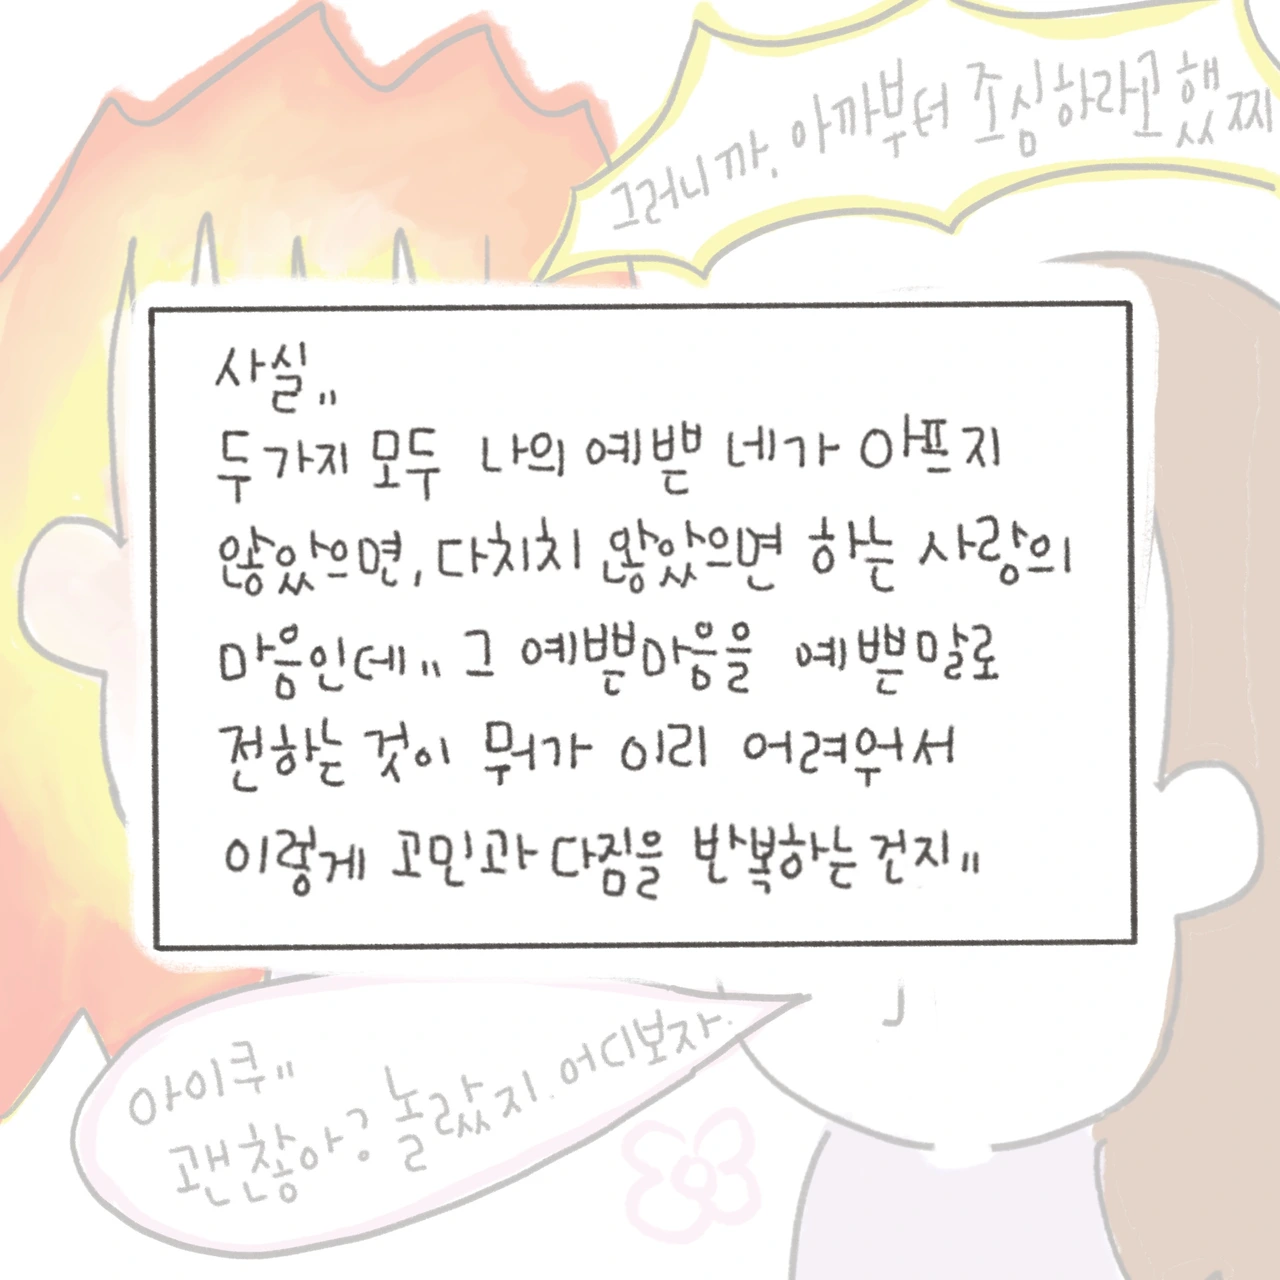 그러니까, 아까부터 조심하라고 했찌
사실"
두가지 모두 나의 예쁜 네가 아프지
않았으면, 다치치 않았으면 하는 사랑의
마음인데" 그 예쁜마음을 예쁜말로
전하는 것이 뭐가 이리 어려워서
이렇게 고민과 다짐을 반복하는 건지"
아이쿠"
괜찮아? 놀랐지. 어디보자.